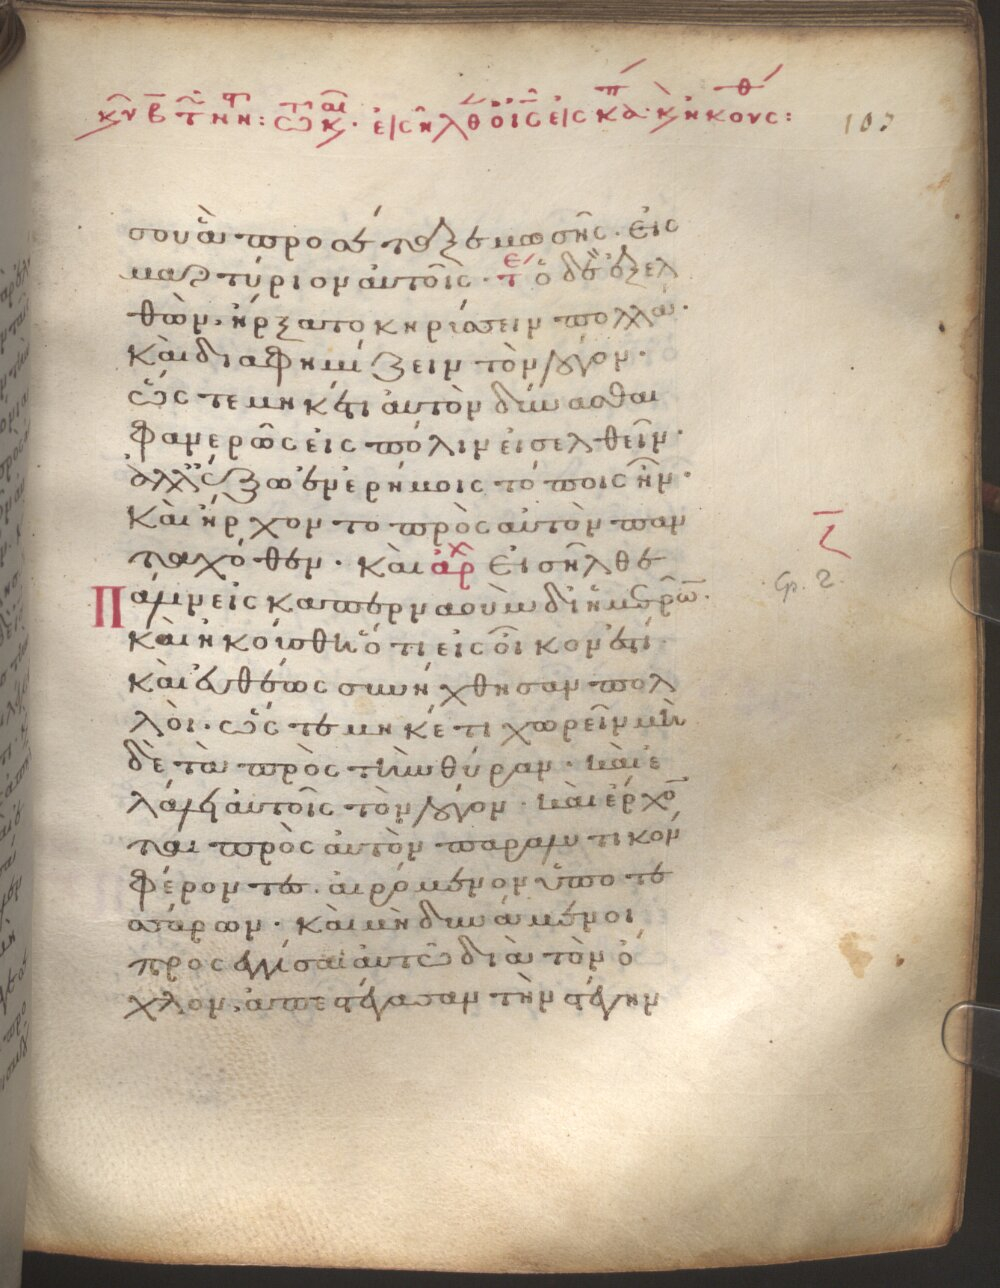 κυ β τ νη: τω κ. εἰσῆλθ ὁ ις εἰς κα. κ ἤκους:
107
σου ἃ προσέταξε μωσῆς. εἰς
μαρτύριον αὐτοῖς. τε ὁ δὲ ἐξελ
θὼν, ἤρξατο κηρύσσειν πολλὰ.
καὶ διαφημίζειν τὸν λόγον.
ὥς τε μηκέτι αὐτὸν δύνασθαι
φανερῶς εἰς πόλιν εἰσελθεῖν.
ἀλλ' ἔξω ἐν ἐρήμοις τόποις ἦν.
καὶ ἤρχον το πρὸς αὐτὸν παν
ταχόθεν. καὶ ἀρχ εἰσῆλθε
πάλιν εἰς καπερναοὺμ δι' ἡμερῶ.
καὶ ἠκούσθη ὅτι εἰς οἶκον ἐστί.
καὶ εὐθέως συνήχθησαν πολ
λοὶ. ὥς τε μηκέτι χωρεῖν μη
δὲ τὰ πρὸς τὴν θύραν. καὶ ἐ
λάλει αὐτοῖς τὸν λόγον. καὶ ἔρχον
ται πρὸς αὐτὸν παραλυτικὸν
φέροντες. αἰρόμενον ὑπὸ τε
σσάρων. καὶ μὴ δυνάμενοι
προσεγγίσαι αὐτῶ διὰ τὸν ὄ
χλον, ἀπεστέγασαν τὴν στέγην
ζ
cp. 2